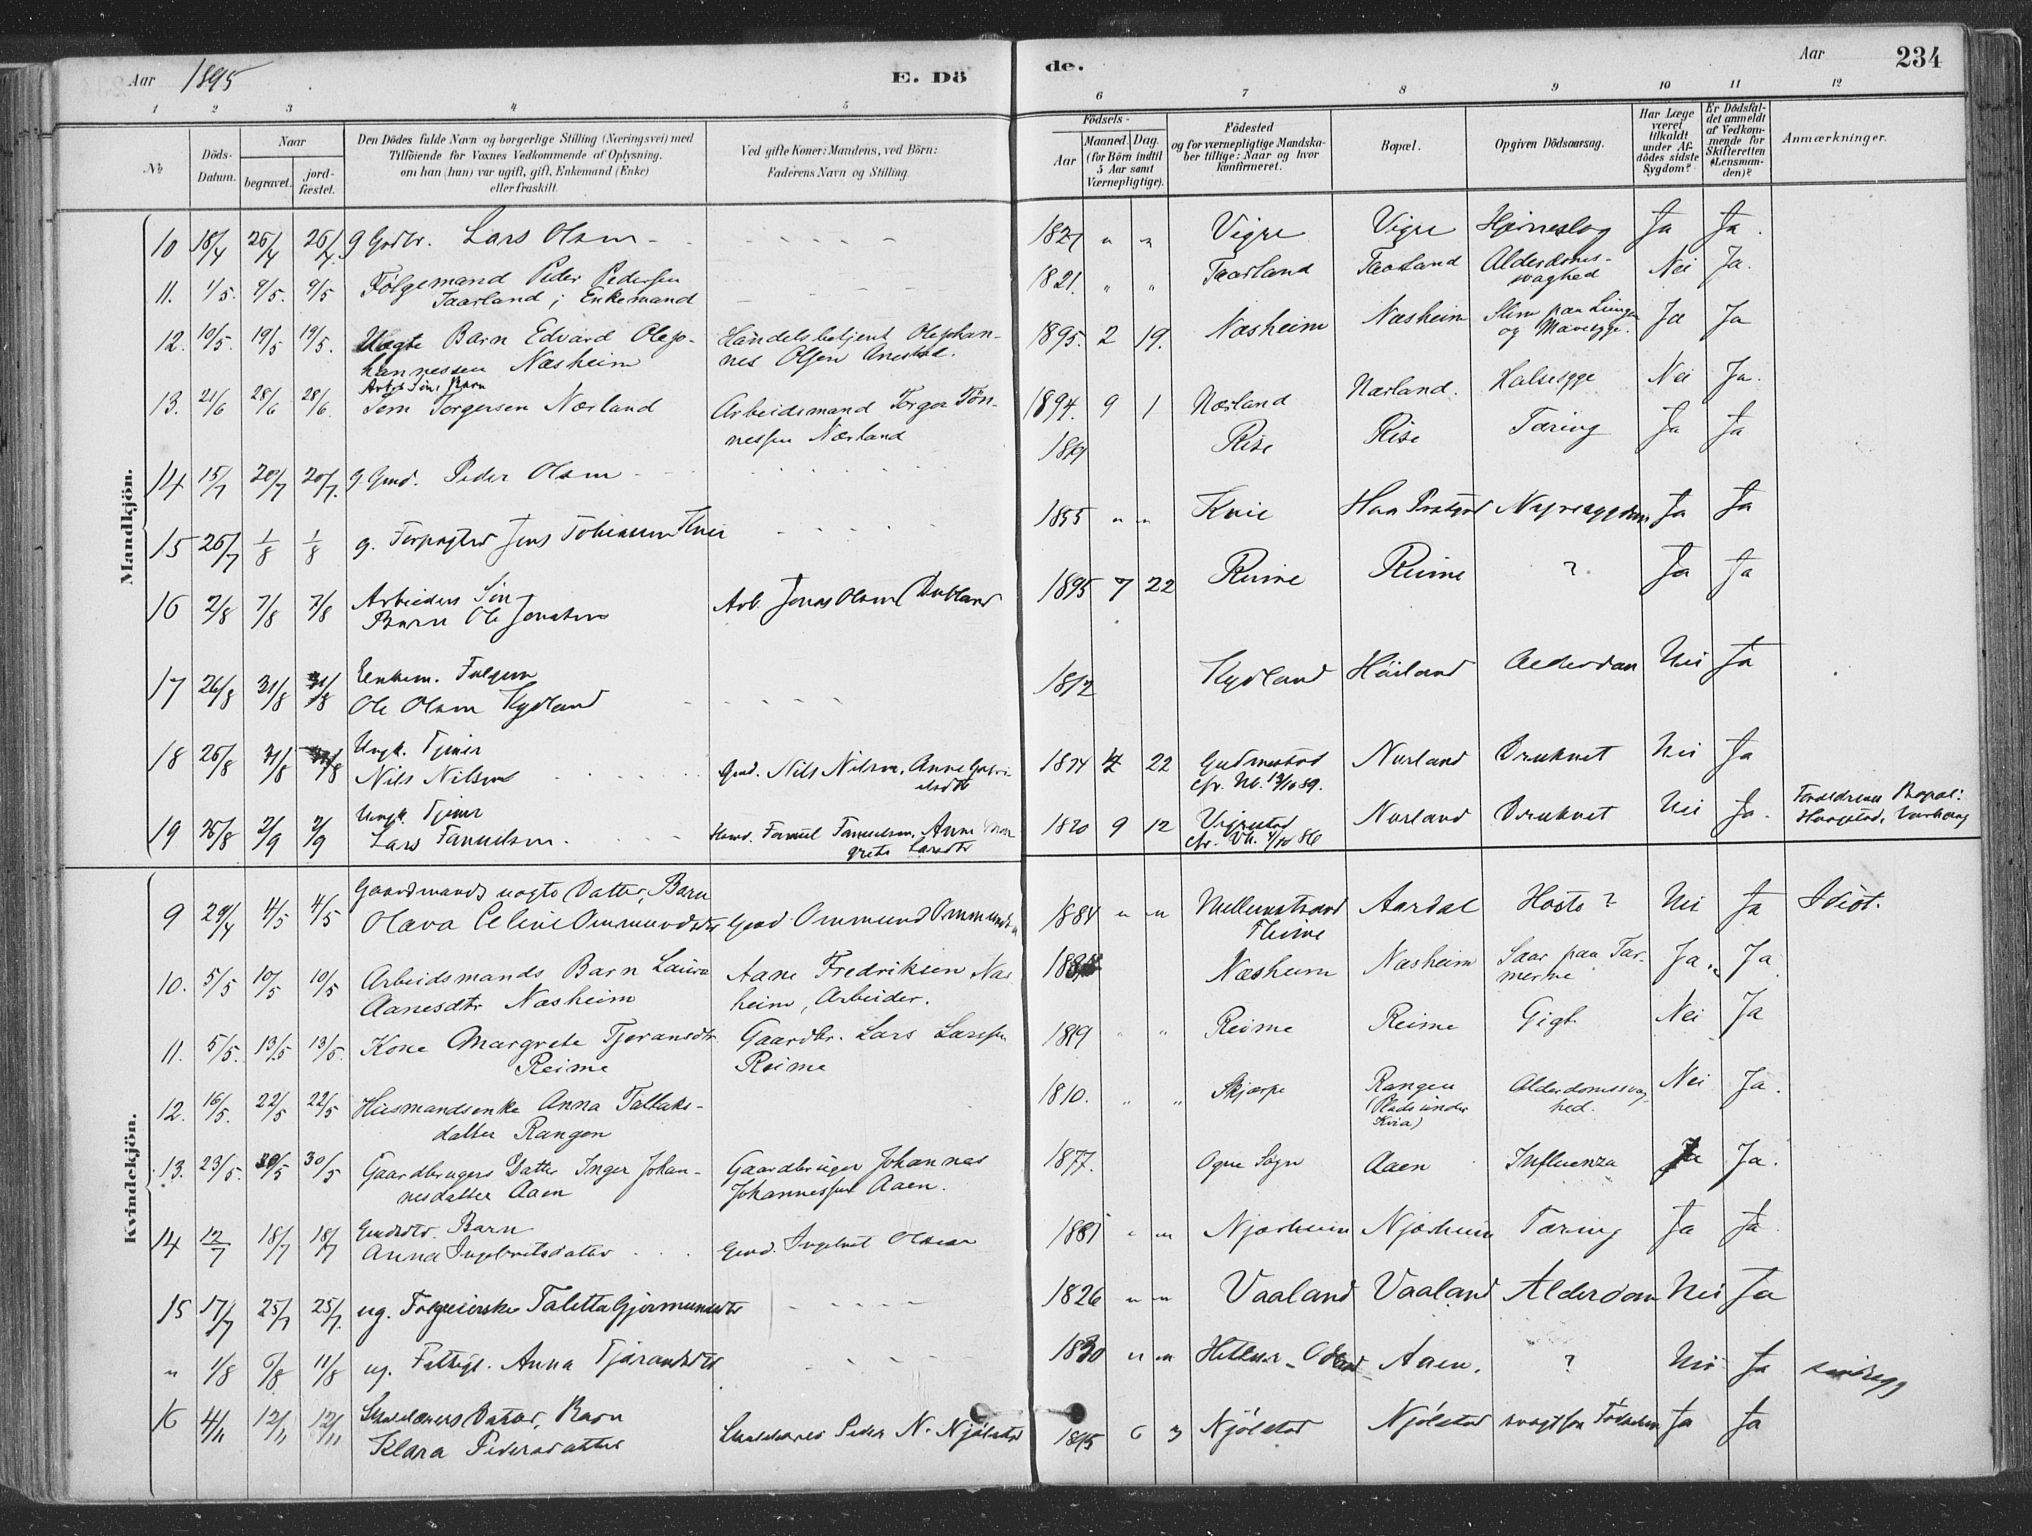 Aar 1895
E. Dö
de.
Aar
234
1 2 3 4 5 6 7 8 9 10 11 12
№
Döds-Datum.
Naar
begravet.
jord-fæstet.
Den Dödes fulde Navn og borgerlige Stilling (Næringsvei) med
Tilföiende for Voxnes Vedkommende af Oplysning.
om han (hun) var ugift, gift, Enkemand (Enke)
eller fraskilt.
Ved gifte Koner: Mandens, ved Börn:
Faderens Navn og Stilling.
Födsels-
Aar
Maaned. Dag.
(for Börn indtil
5 Aar samt
Værnepligtige).
Födested
og for værnepligtige Mandska-
ber tillige: Naar og hvor
konfirmeret.
Bopæl.
Opgiven Dödsaarsag.
Har Læge
været
tilkaldt
under Af-
dödes sidste
Sygdom?
Er Dödsfal-
det anmeldt
af Vedkom-
mende for
Skifteretten
(Lensman-
den)?
Anmærkninger.
Mandkjön.
10 18/4 26/4 26/4 g Gdbr. Lars Olsen 1821 " " Vigre Vigre Hjerneslag Ja Ja.
11. 1/5. 9/5. 9/5 Følgemand Peder Pedersen
Taarland; Enkemand 1821. " " Taarland Taarland Alderdoms-
svaghed Nei Ja.
12. 10/5. 19/5 19/5. Uægte Barn Edvard Olejo-
hannessen Næsheim Handelsbetjent Olejohan-
nes Olsen 1895. 2 19. Næsheim Næsheim Slim paa Lunge
og Mavesyge. Ja Ja
13. 21/6 28/6 28/6. Arbds Søn, Barn
Torgersen Nærland Arbeidsmand Torger Tön-
nessen Nærland 1894. 9 1 Nærland Nærland. Halssyge Nei Ja.
14 15/7 20/7 20/7. g. Gmd. Peder Olsen Rise Rise Tæring Ja Ja
15 26/7 1/8 1/8 g. Forpagter Jens Tobiassen Kvie 1855 " " Kvie Haa Præstgrd Nyresygdom Ja Ja
16 2/8 7/8 7/8 Arbeiders Søn
Barn Ole Jonassen Arb. Jonas Olsen Dubland 1895 7 22 Reime Reime ? Ja Ja
17 26/8 31/8 31/8 Enkem. Følgem
Ole Olsen Kydland 1812 Kydland Höiland Alderdom Nei Ja
18 26/8 31/8 31/8 Ungk. Tjener
Nils Nilsen Gmd. Nils Nilsen, Anne 1874 22 Gudmestad Nærland Druknet Nei Ja
19 26/8 2/9 2/9 Ungk. Tjener
Lars Tanuelsen. Anne Mar-
grete Larsdtr 9 12 Vigrestad Nærland Druknet Nei Ja. Forældrenes Bopæl:
Haugstad, Varhaug
Kvindekjön.
9 29/4 4/5 4/5 Gaardmands uægte Datter, Barn
Olava Eline Ommundsdtr Gmd Ommund Ommundsen 1884 " " Aardal Hoste? Nei Ja Idiot.
10. 5/5 10/5 10/5 Arbeidsmands Barn Laura
Aanesdtr Næsheim Aane Fredriksen Næs
heim, Arbeider. Næsheim Næsheim Saar paa Tar-
mene Ja. Ja
11. 5/5. 13/5 13/5. Kone Margrete Tjeransdtr
Reime Gaardbr. Lars Larssen
Reime 1819 " " Reime Reime Gigt Nei Ja
12. 16/5. 22/5 22/5 Husmandsenke Anna Tallaks-
datter Rangen 1810. " " Skjærpe Rangen
(Plads under
Kvia) Alderdomssvag-
hed. Nei Ja.
13. 23/5. 30/5 30/5 Gaardbrugers Datter Inger Johan-
nesdatter Aaen Gaardbruger Johannes
Johannessen Aaen. 1877. Ogne Sogn Aaen Influenza Ja Ja.
14 12/7 18/7 18/7 Gmdsdtr. Barn
Anna Ingebretsdatter Gmd. Ingebret Olsen 1881 " " Njærheim Njærheim Tæring Ja Ja
15 17/7 25/7 25/7. ug. Følgeierske Taletta Gjermundsdtr 1826 " " Vaaland Vaaland Alderdom Nei Ja
" 1/8 6/8 11/8 ug. Fattigl. Anna Tjørandsdtr 1830 " " Aaen. ? Nei Ja
16 4/11 12/11 12/11 Skolelærers Datter, Barn
Klara Pedersdatter Skolelærer Peder N. Njölstad 1895 6 3 Njölstad Njölstad svagt fra Fødselen Ja Ja